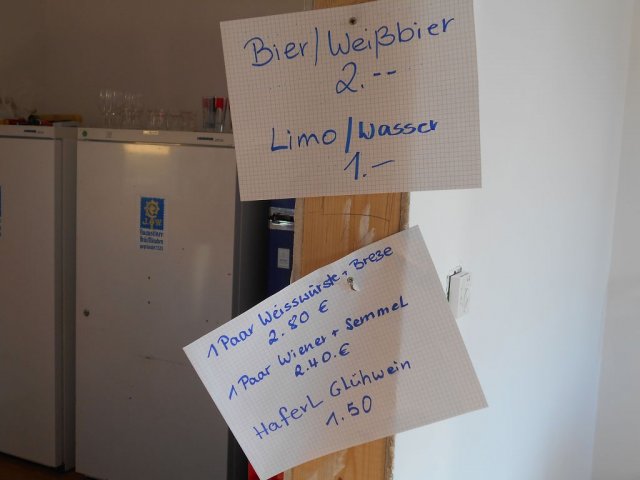 Bier/Weißbier
2.--
Limo/Wasser
1.—
1 Paar Weisswürste + Breze
2.80 €
1 Paar Wiener + Semmel
2.40 €
Haferl Glühwein
1.50